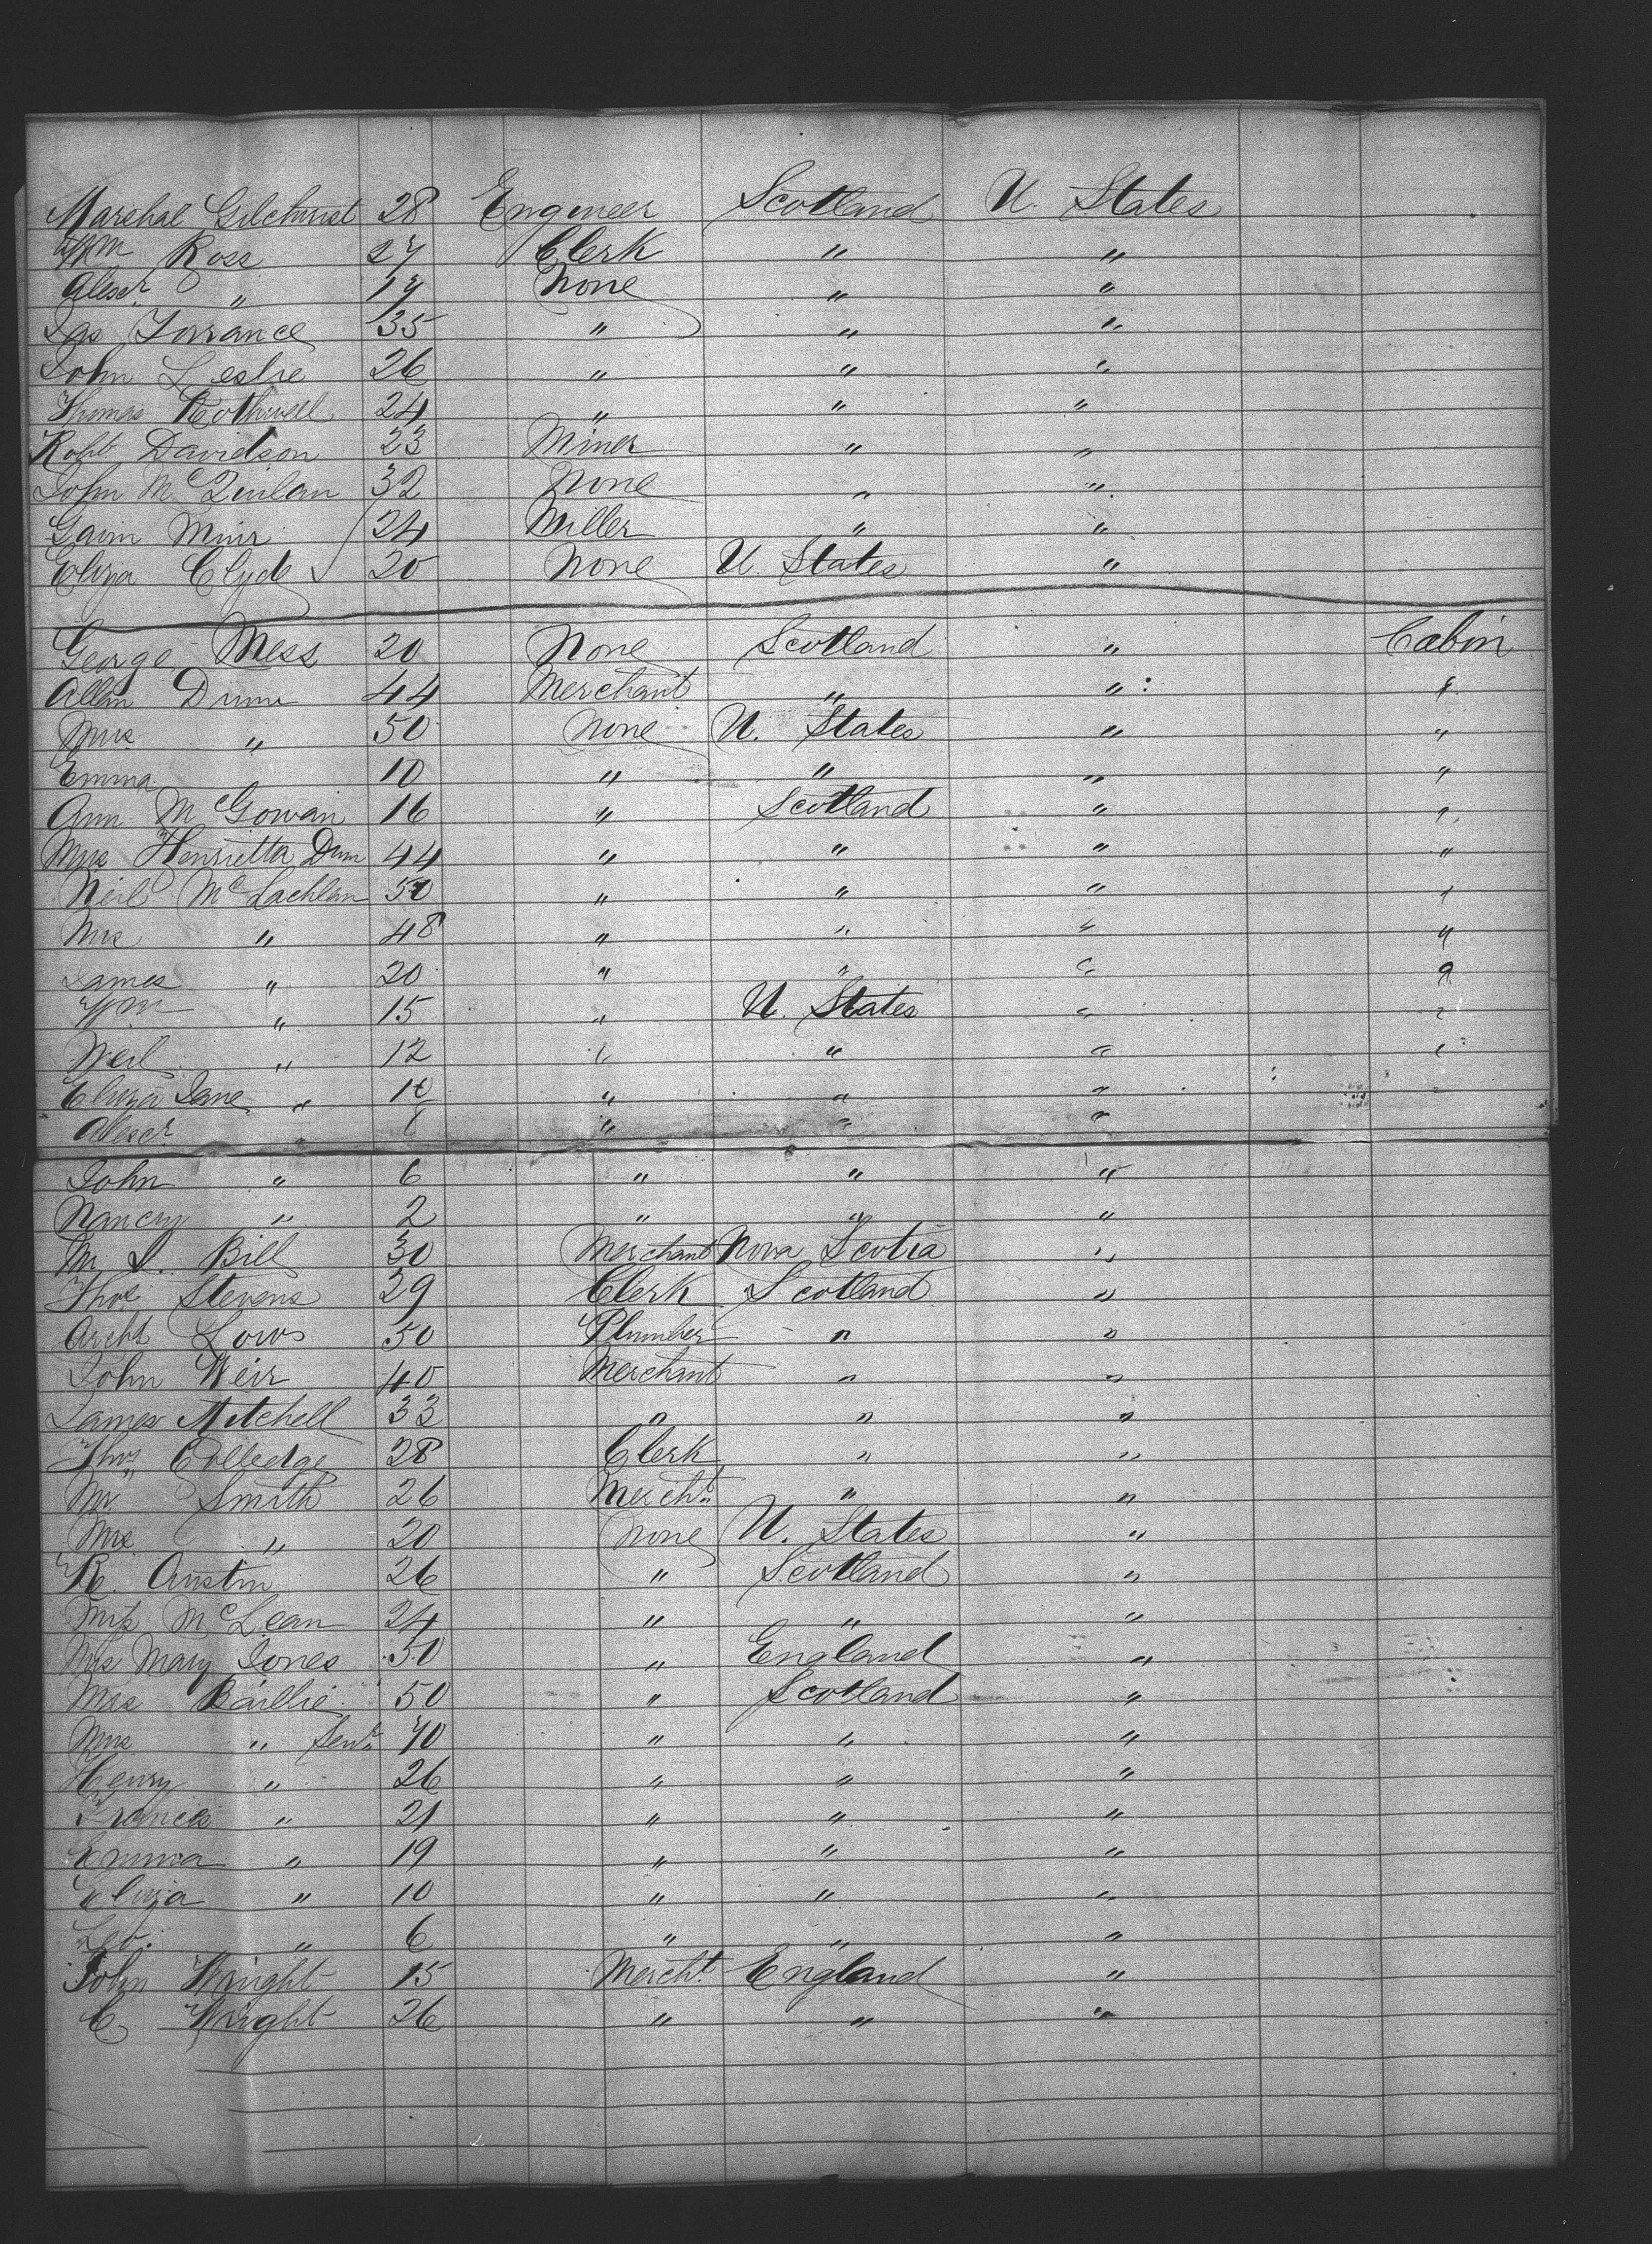 Marshal Gilchrist 28 Engineer Scotland U. States
Wm Ross 27 Clerk " "
Alexr " 17 None " "
Jas Torrance 35 " " "
John Leslie 26 " " "
Thomas Rothwell 24 " " "
Robt Davidson 23 Miner " "
John McQuilan 32 None " "
Gavin Muir 24 Miller " "
Eliza Clyde 20 None U. States "
George Mess 20 None Scotland " Cabin
Allan Dunn 44 Merchant " " "
Mrs " 50 None U. States " "
Emma 10 " " " "
Ann McGowan 16 " Scotland " "
Mrs Henrietta Dunn 44 " " " "
Neil McLachlan 50 " " " "
Mrs " 48 " " " "
James " 20 " " " "
Wm " 15 " U. States " "
Neil " 12 " " " "
Eliza Jane " 10 " " " "
Alexr " " " "
John " 6 " " "
Nancy " 2 " " "
M Bill 30 Merchant Nova Scotia "
Thos Stevens 29 Clerk Scotland "
Archd Lows 50 Plumber " "
John Weir 40 Merchant " "
James Mitchell 33 " " "
Thos Colledge 28 Clerk " "
Mr Smith 26 Mercht " "
Mrs " 20 None U. States "
R. Austin 26 " Scotland "
Miss McLean 24 " " "
Mrs Mary Jones 50 " England "
Mrs Baillie 50 " Scotland "
Mrs " Senr 70 " " "
Henry " 26 " " "
Francis " 21 " " "
Emma " 19 " " "
Eliza " 10 " " "
Geo. " 6 " " "
John Wright 15 Mercht England "
C Wright 26 " " "